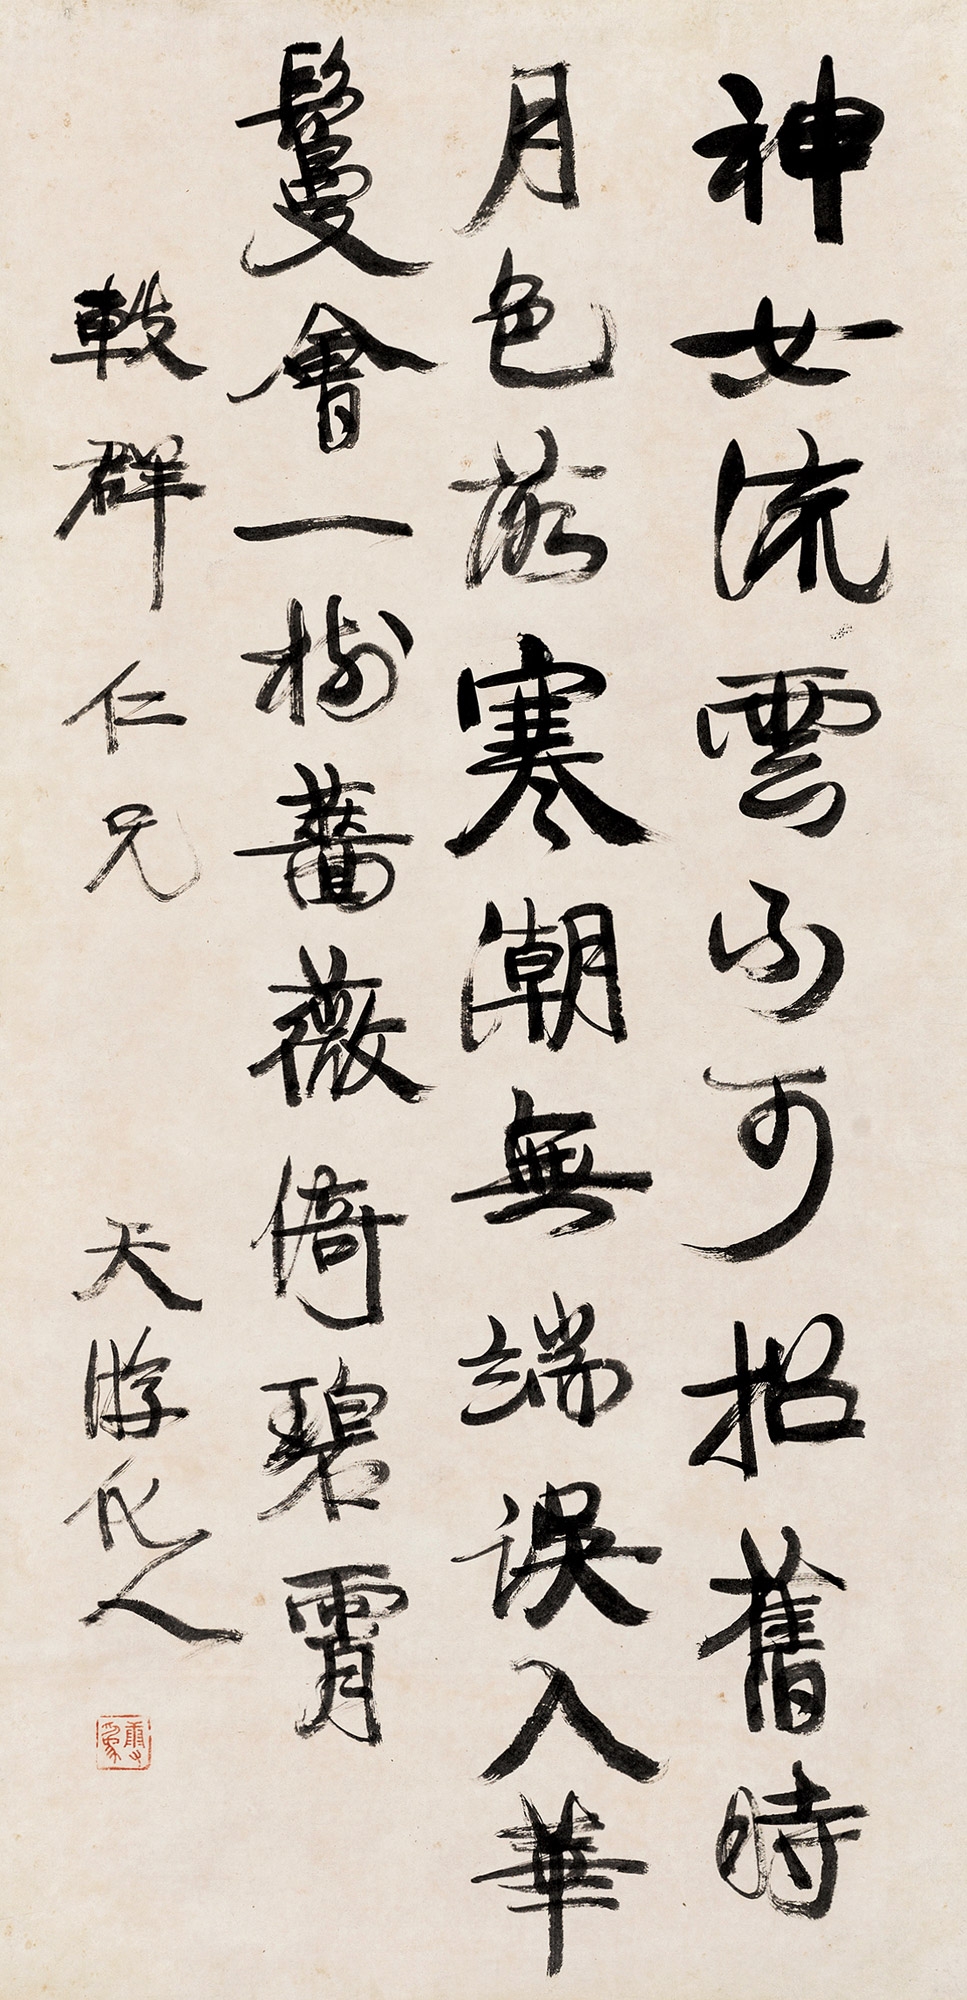 神女流雲不可招舊時
月色落寒潮無端誤入華
鬘會一樹薔薇倚碧霄
群仁兄
天游化人